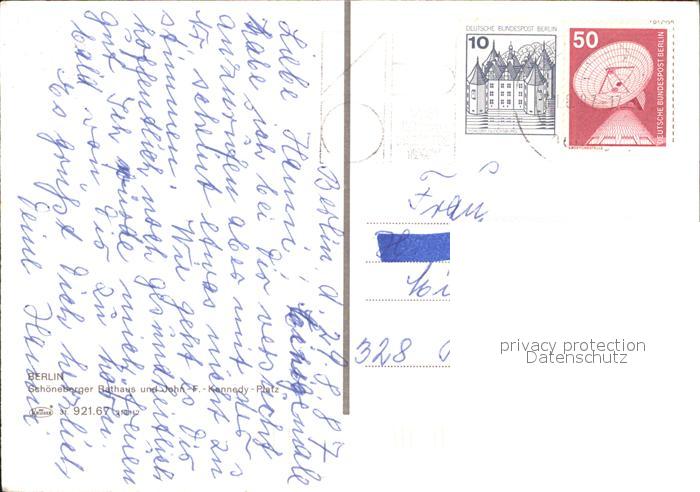 Berlin, d. 29.8.87
Liebe Hanni!
Habe
sich bei Dir versucht
anzurufen aber mit der
Nr scheint etwas nicht zu
stimmen. Wie geht es Dir
hoffentlich noch gesundheitlich
gut. Ich würde mich freuen
bald von Dir zu hören.
Es grüßt Dich herzlich
Deine
BERLIN
Schöneberger Rathaus und John-F.-Kennedy-Platz
921.67
DEUTSCHE BUNDESPOST BERLIN
10
50
DEUTSCHE BUNDESPOST BERLIN
Frau
328
privacy protection
Datenschutz